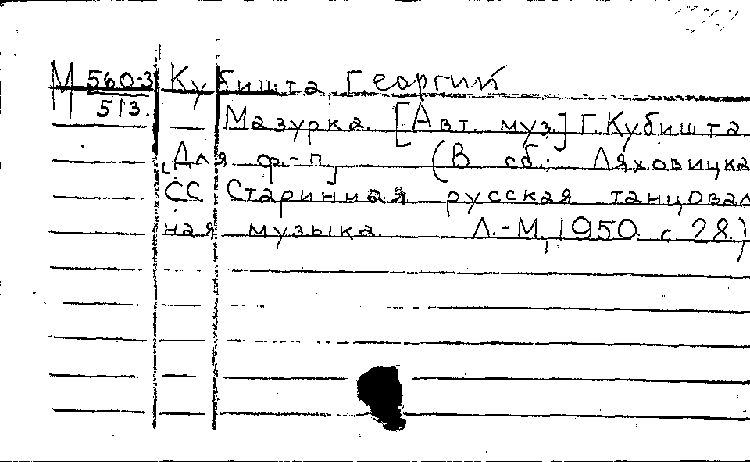 М 560-3/513. Кубишта Георгий
Мазурка. [Авт. муз.] Г. Кубишта
[Для ф.-п.] (В сб.: Ляховицка
СС Старинная русская танцовал
ная музыка. Л.-М, 1950. с 28.)